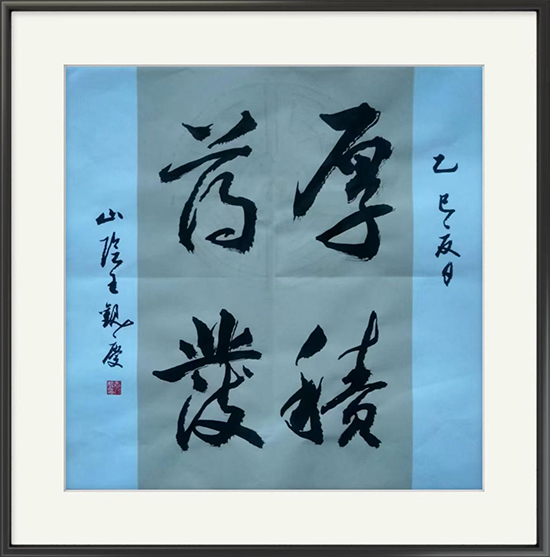 乙巳夏月
厚積
薄發
山陰王觀慶